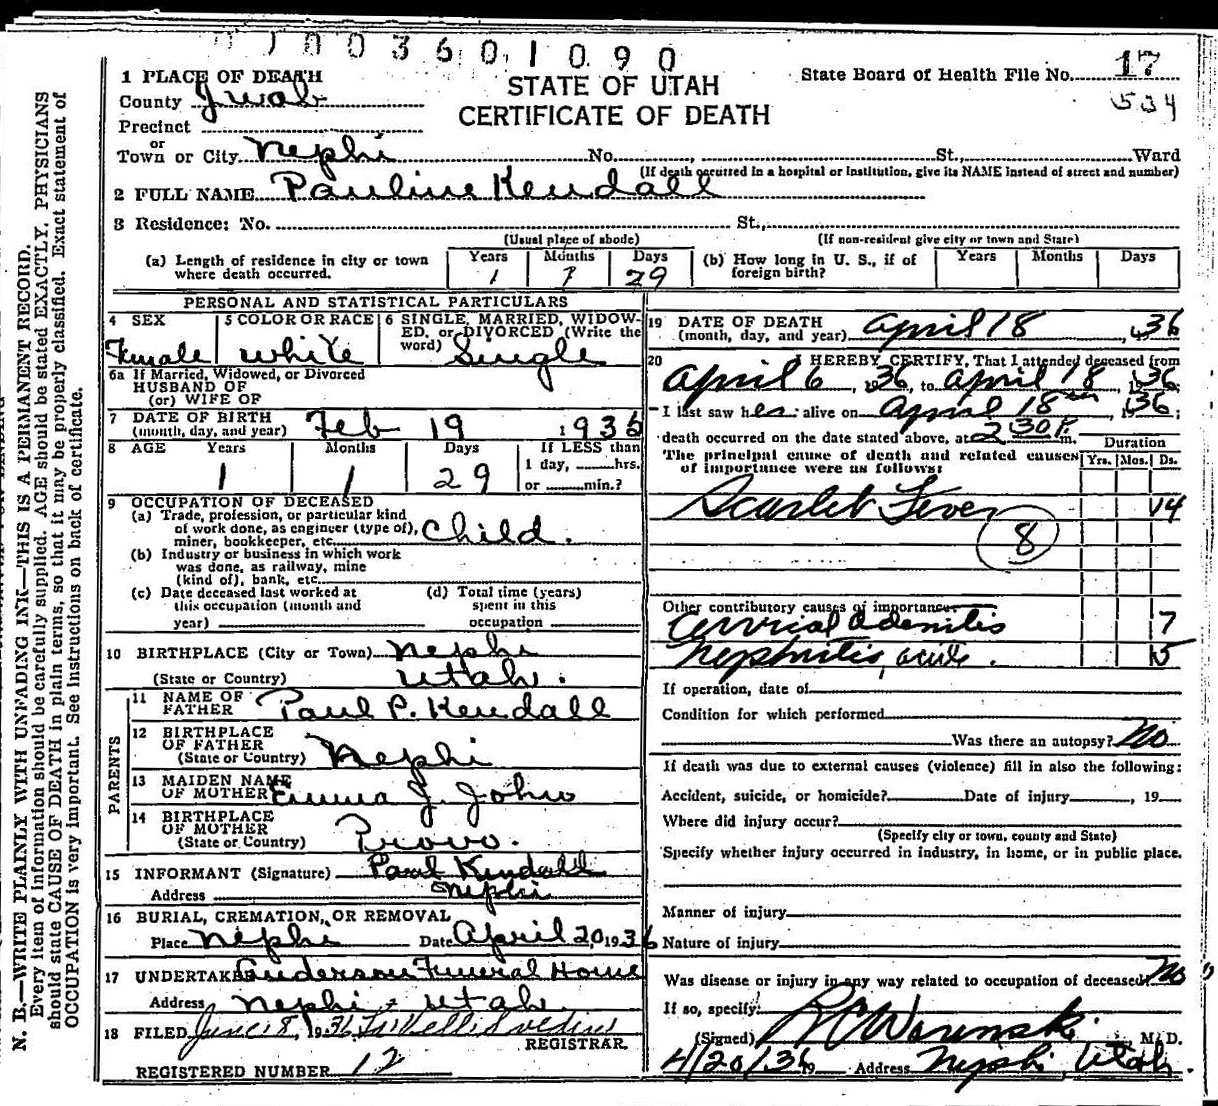 01003601090
1 PLACE OF DEATH
County Juab
STATE OF UTAH
CERTIFICATE OF DEATH
State Board of Health File No. 17
534
Precinct
or
Town or City Nephi No. , St., Ward
(If death occurred in a hospital or institution, give its NAME instead of street and number)
2 FULL NAME Pauline Kendall
3 Residence: No. St.,
(Usual place of abode) (If non-resident give city or town and State)
(a) Length of residence in city or town where death occurred. Years 1 Months Days 29
(b) How long in U. S., if of foreign birth? Years Months Days
PERSONAL AND STATISTICAL PARTICULARS
4 SEX Female
5 COLOR OR RACE White
6 SINGLE, MARRIED, WIDOWED, or DIVORCED (Write the word) Single
6a If Married, Widowed, or Divorced
HUSBAND OF
(or) WIFE OF
7 DATE OF BIRTH (month, day, and year) Feb 19 193
8 AGE Years 1 Months 1 Days 29 If LESS than 1 day, hrs. or min.?
9 OCCUPATION OF DECEASED
(a) Trade, profession, or particular kind of work done, as engineer (type of), miner, bookkeeper, etc. Child.
(b) Industry or business in which work was done, as railway, mine (kind of), bank, etc.
(c) Date deceased last worked at this occupation (month and year)
(d) Total time (years) spent in this occupation
10 BIRTHPLACE (City or Town) Nephi
(State or Country) Utah.
PARENTS
11 NAME OF FATHER Paul P. Kendall
12 BIRTHPLACE OF FATHER (State or Country) Nephi
13 MAIDEN NAME OF MOTHER Emma J. John
14 BIRTHPLACE OF MOTHER (State or Country) Provo.
15 INFORMANT (Signature) Paul Kendall
Address Nephi
16 BURIAL, CREMATION, OR REMOVAL
Place Nephi Date April 20, 1936
17 UNDERTAKER Anderson Funeral Home
Address Nephi - Utah
18 FILED June 8, 1936
REGISTRAR.
REGISTERED NUMBER 12
19 DATE OF DEATH (month, day, and year) April 18, 1936
20 I HEREBY CERTIFY, That I attended deceased from
April 6, 1936, to April 18, 1936;
I last saw her alive on April 18th, 1936;
death occurred on the date stated above, at 2 30 P. m.
The principal cause of death and related causes of importance were as follows:
Duration
Yrs. Mos. Ds.
Scarlet Fever 14
8
Other contributory causes of importance:
Cervical Adenitis 7
Nephritis, acute. 5
If operation, date of
Condition for which performed
Was there an autopsy? No
If death was due to external causes (violence) fill in also the following:
Accident, suicide, or homicide? Date of injury , 19
Where did injury occur?
(Specify city or town, county and State)
Specify whether injury occurred in industry, in home, or in public place.
Manner of injury
Nature of injury
Was disease or injury in any way related to occupation of deceased? No
If so, specify
(Signed) M. D.
4/20/36 19 Address Nephi, Utah.
N. B.—WRITE PLAINLY WITH UNFADING INK—THIS IS A PERMANENT RECORD.
Every item of information should be carefully supplied. AGE should be stated EXACTLY. PHYSICIANS
should state CAUSE OF DEATH in plain terms, so that it may be properly classified. Exact statement of
OCCUPATION is very important. See instructions on back of certificate.